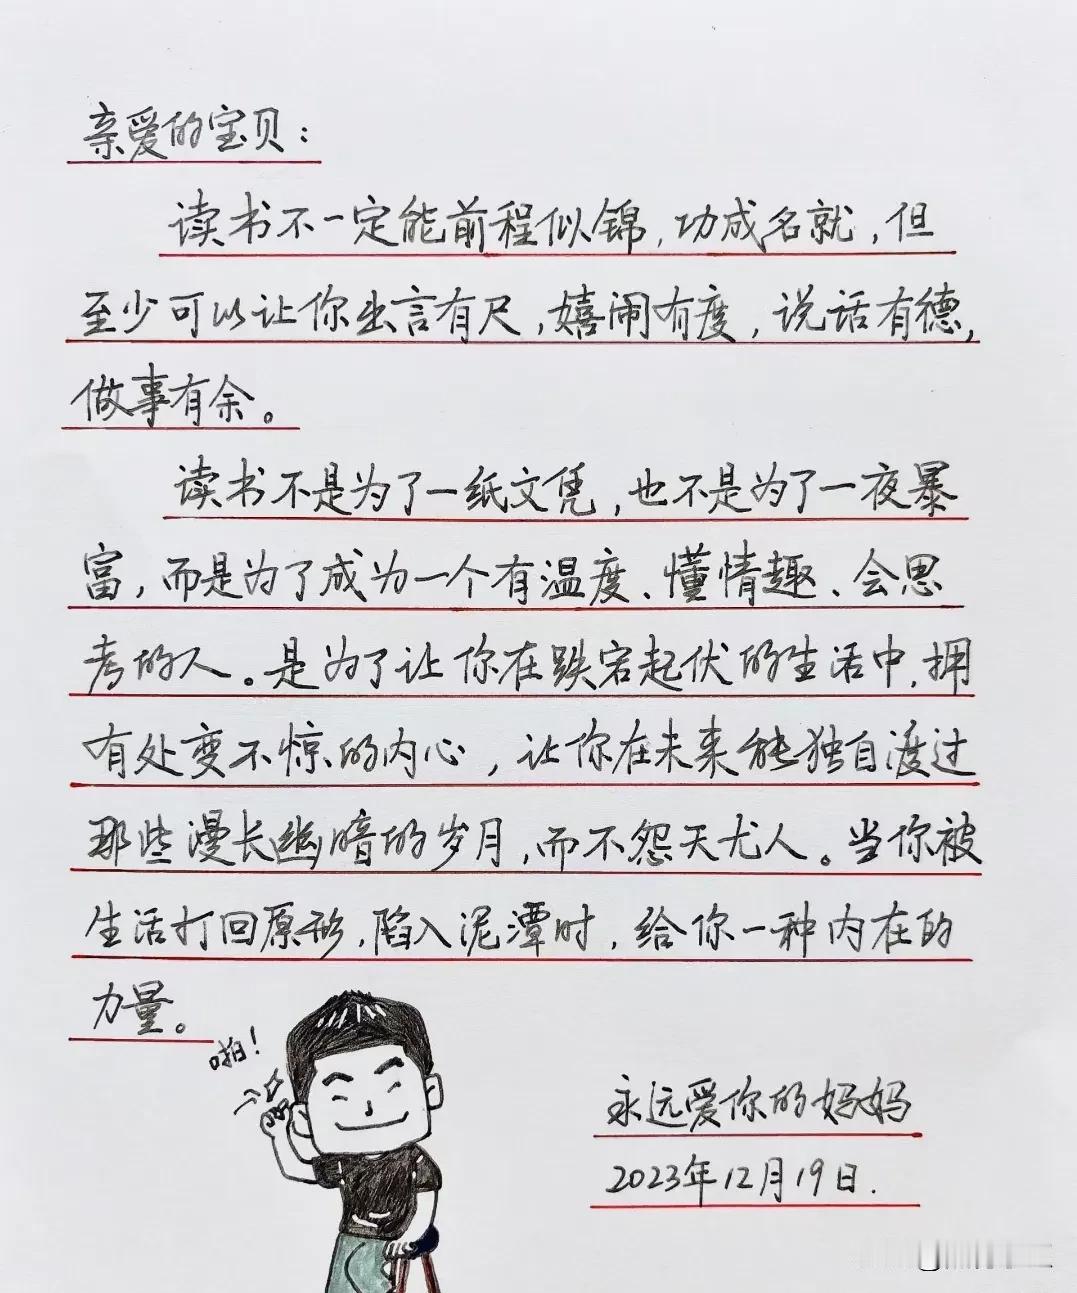 亲爱的宝贝：
读书不一定能前程似锦,功成名就,但
至少可以让你出言有尺,嬉闹有度,说话有德,
做事有余。
读书不是为了一纸文凭,也不是为了一夜暴
富,而是为了成为一个有温度、懂情趣、会思
考的人。是为了让你在跌宕起伏的生活中,拥
有处变不惊的内心,让你在未来能独自渡过
那些漫长幽暗的岁月,而不怨天尤人。当你被
生活打回原形,陷入泥潭时,给你一种内在的
力量。
啪!
永远爱你的妈妈
2023年12月19日.